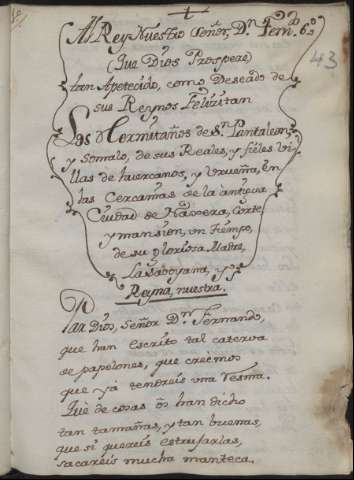 Al Rey Nuestro Señor, Dn. Fernd. 6º.
43
(Que Dios Prospere)
tan Apetecido, como Deseado de
sus Reynos Felicitan
Los Hermitaños de Sn. Pantaleon,
y Somalo, de sus Reales, y fieles vi-
llas de huercanos, y Vrueña, en
las Cercanias de la antigua
Ciudad de Náxera, Corte,
y mansion, un tiempo,
de su gloriosa Madre,
La Saboyana, y
Reyna, nuestra.
Par Dios, Señor Dn. Fernando,
que han escrito tal caterva
de papelones, que creémos
que yá tendreis una resma.
Què de cosas os han dicho
tan tamañas, y tan buenas,
que si quereis estrujarlas,
sacareis mucha manteca.